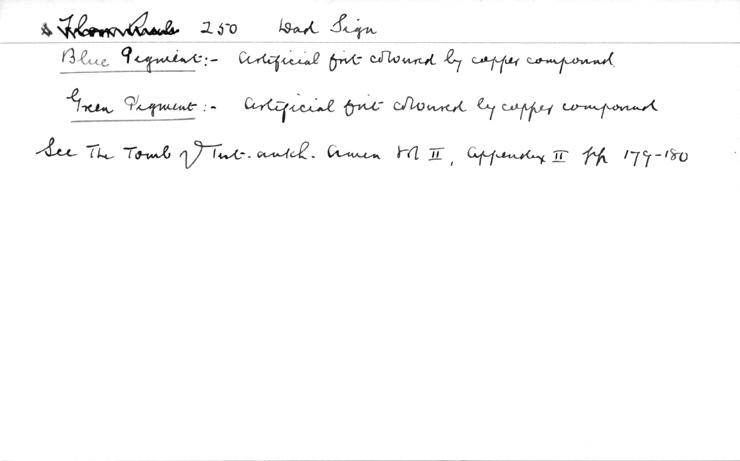 250 Dad Sign
Blue Pigment:- Artificial frit coloured by copper compound.
Green Pigment:- Artificial frit coloured by copper compound
See The Tomb of Tut.ankh.Amen Vol II, Appendix II pp 179-180